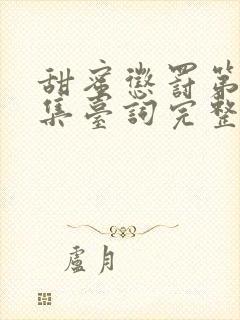 甜蜜懲罰第
集臺詞完整
盧月